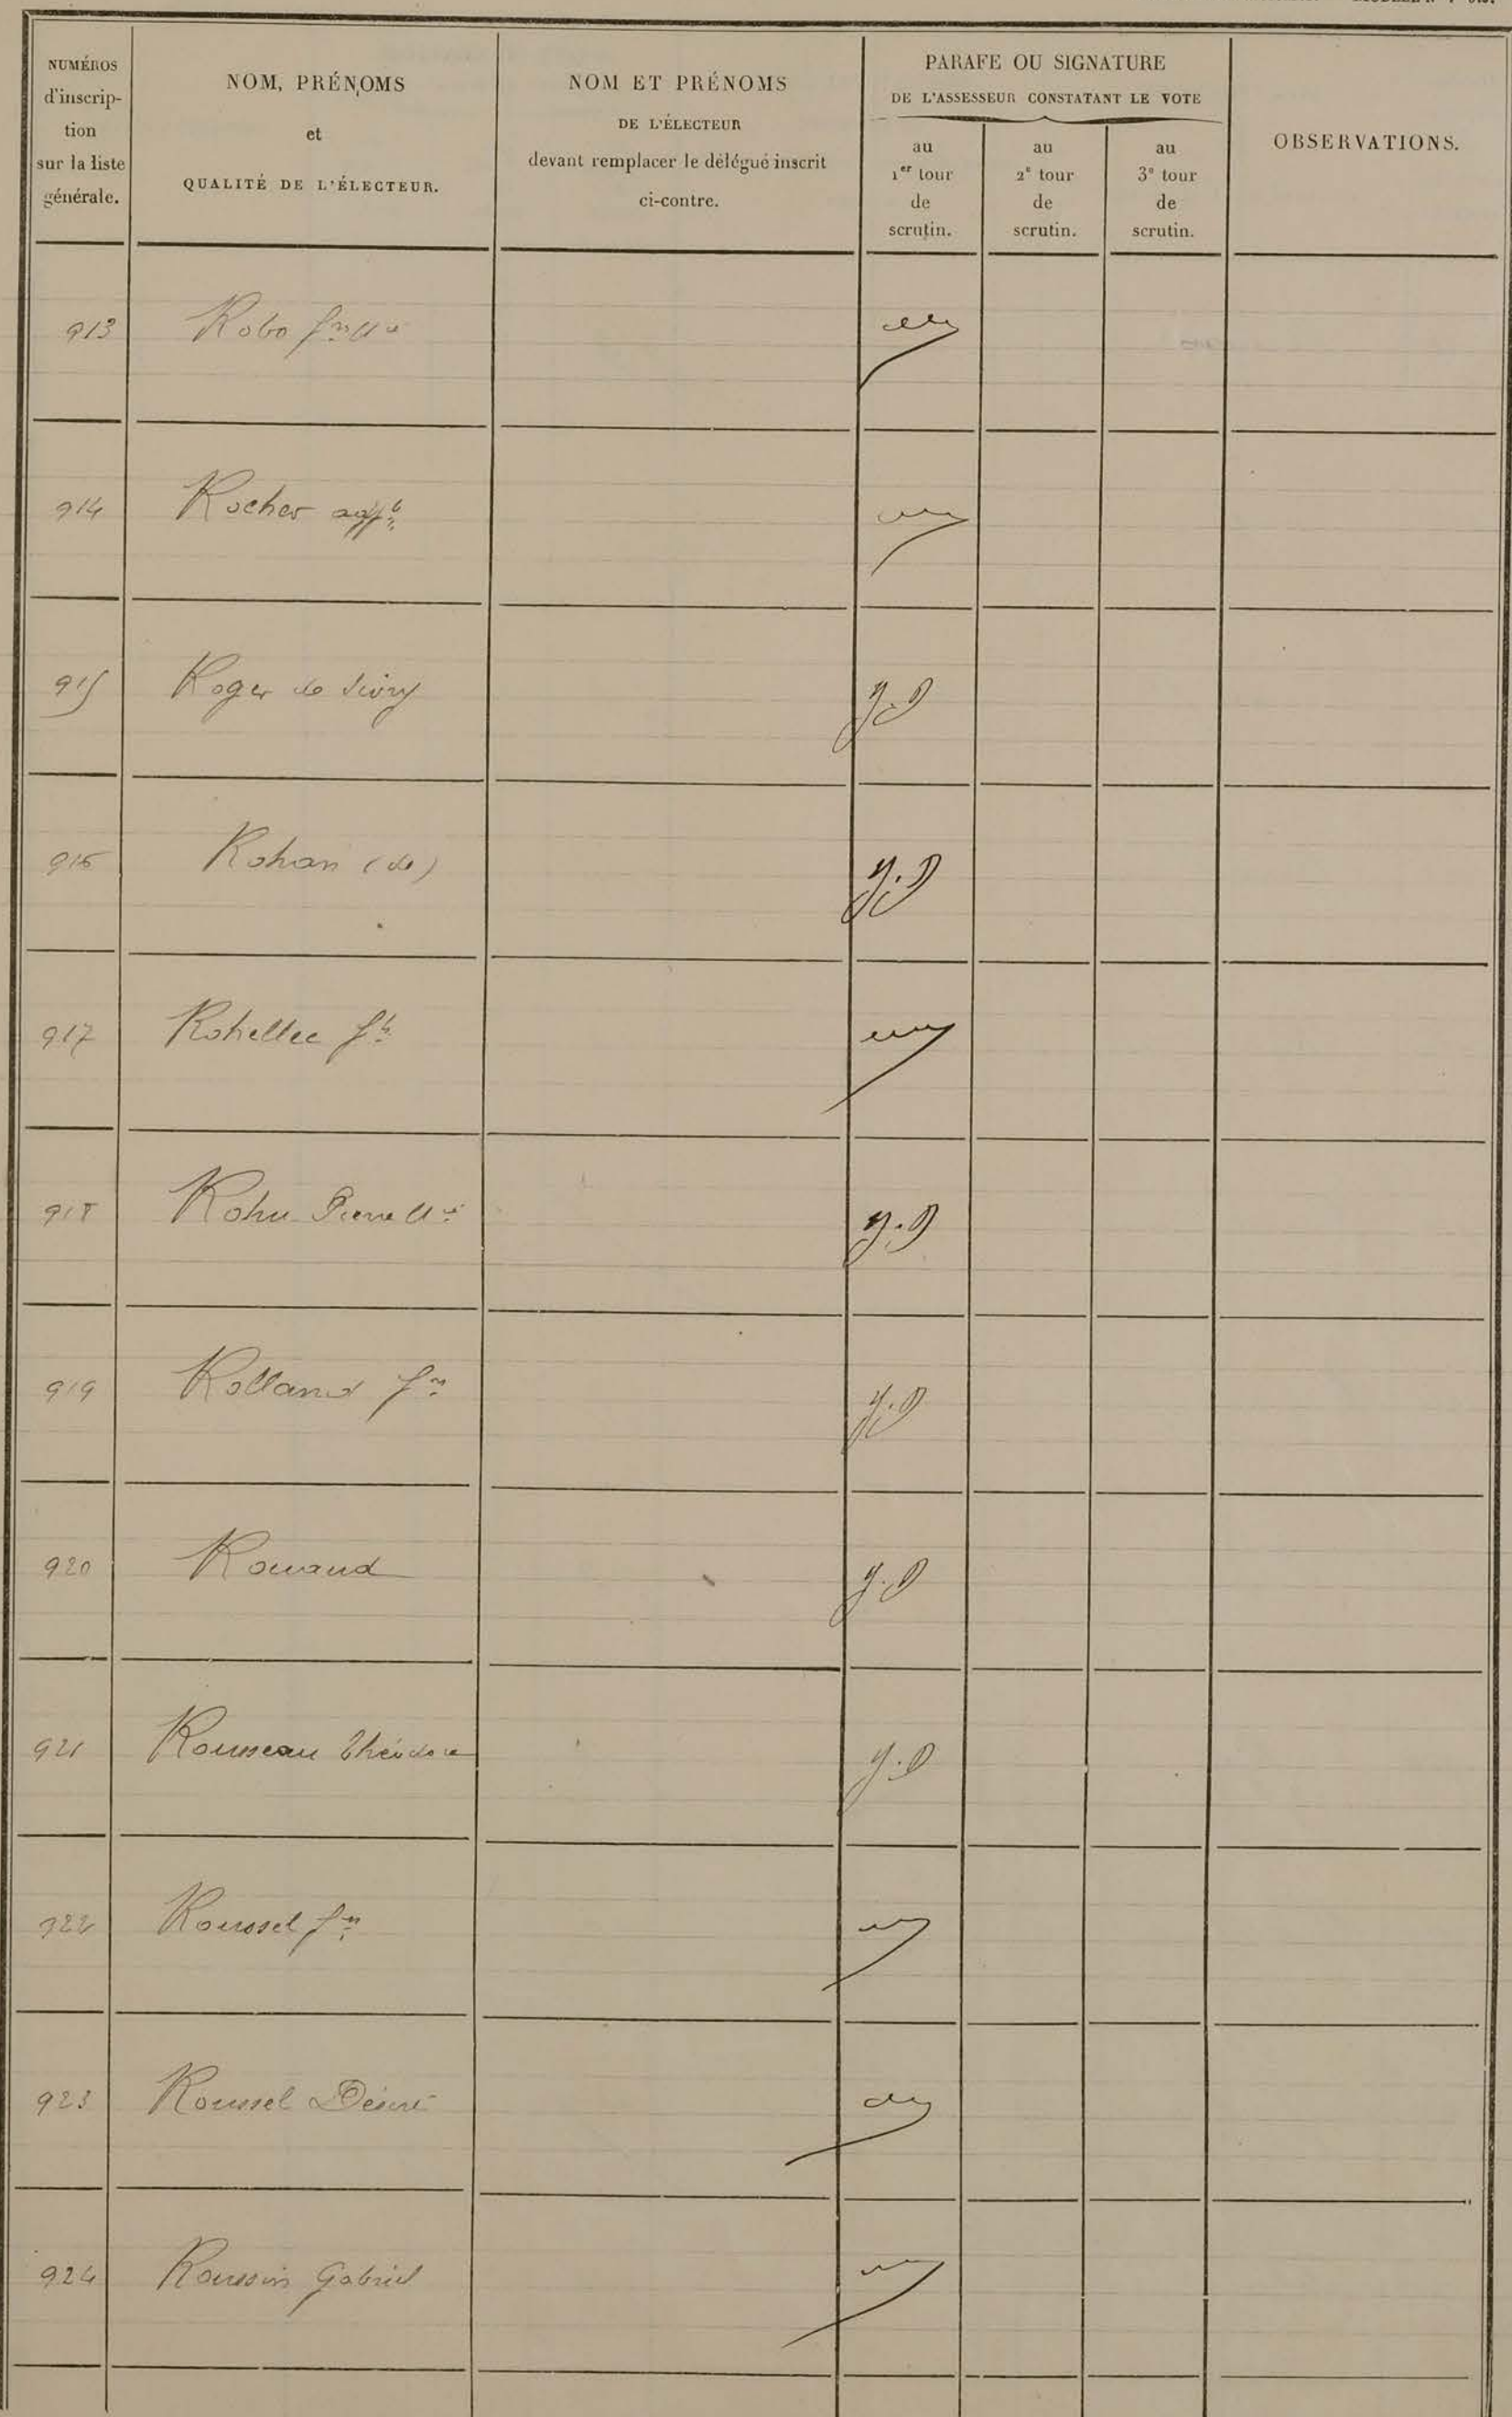 NUMÉROS
d'inscrip-
tion
sur la liste
générale.
NOM, PRÉNOMS
et
QUALITÉ DE L'ÉLECTEUR.
NOM ET PRÉNOMS
DE L'ÉLECTEUR
devant remplacer le délégué inscrit
ci-contre.
PARAFE OU SIGNATURE
DE L'ASSESSEUR CONSTATANT LE VOTE
au
1er tour
de
scrutin.
au
2e tour
de
scrutin.
au
3e tour
de
scrutin.
OBSERVATIONS.
913 Robo
914 Rocher
915 Roger de Sivry
916 Rohan (de)
917 Rohellec fh
918 Rohu Pierre Mie
919 Rolland fn
920 Rouaud
921 Rousseau Théodore
922 Roussel fn
923 Roussel Désiré
924 Roussin Gabriel